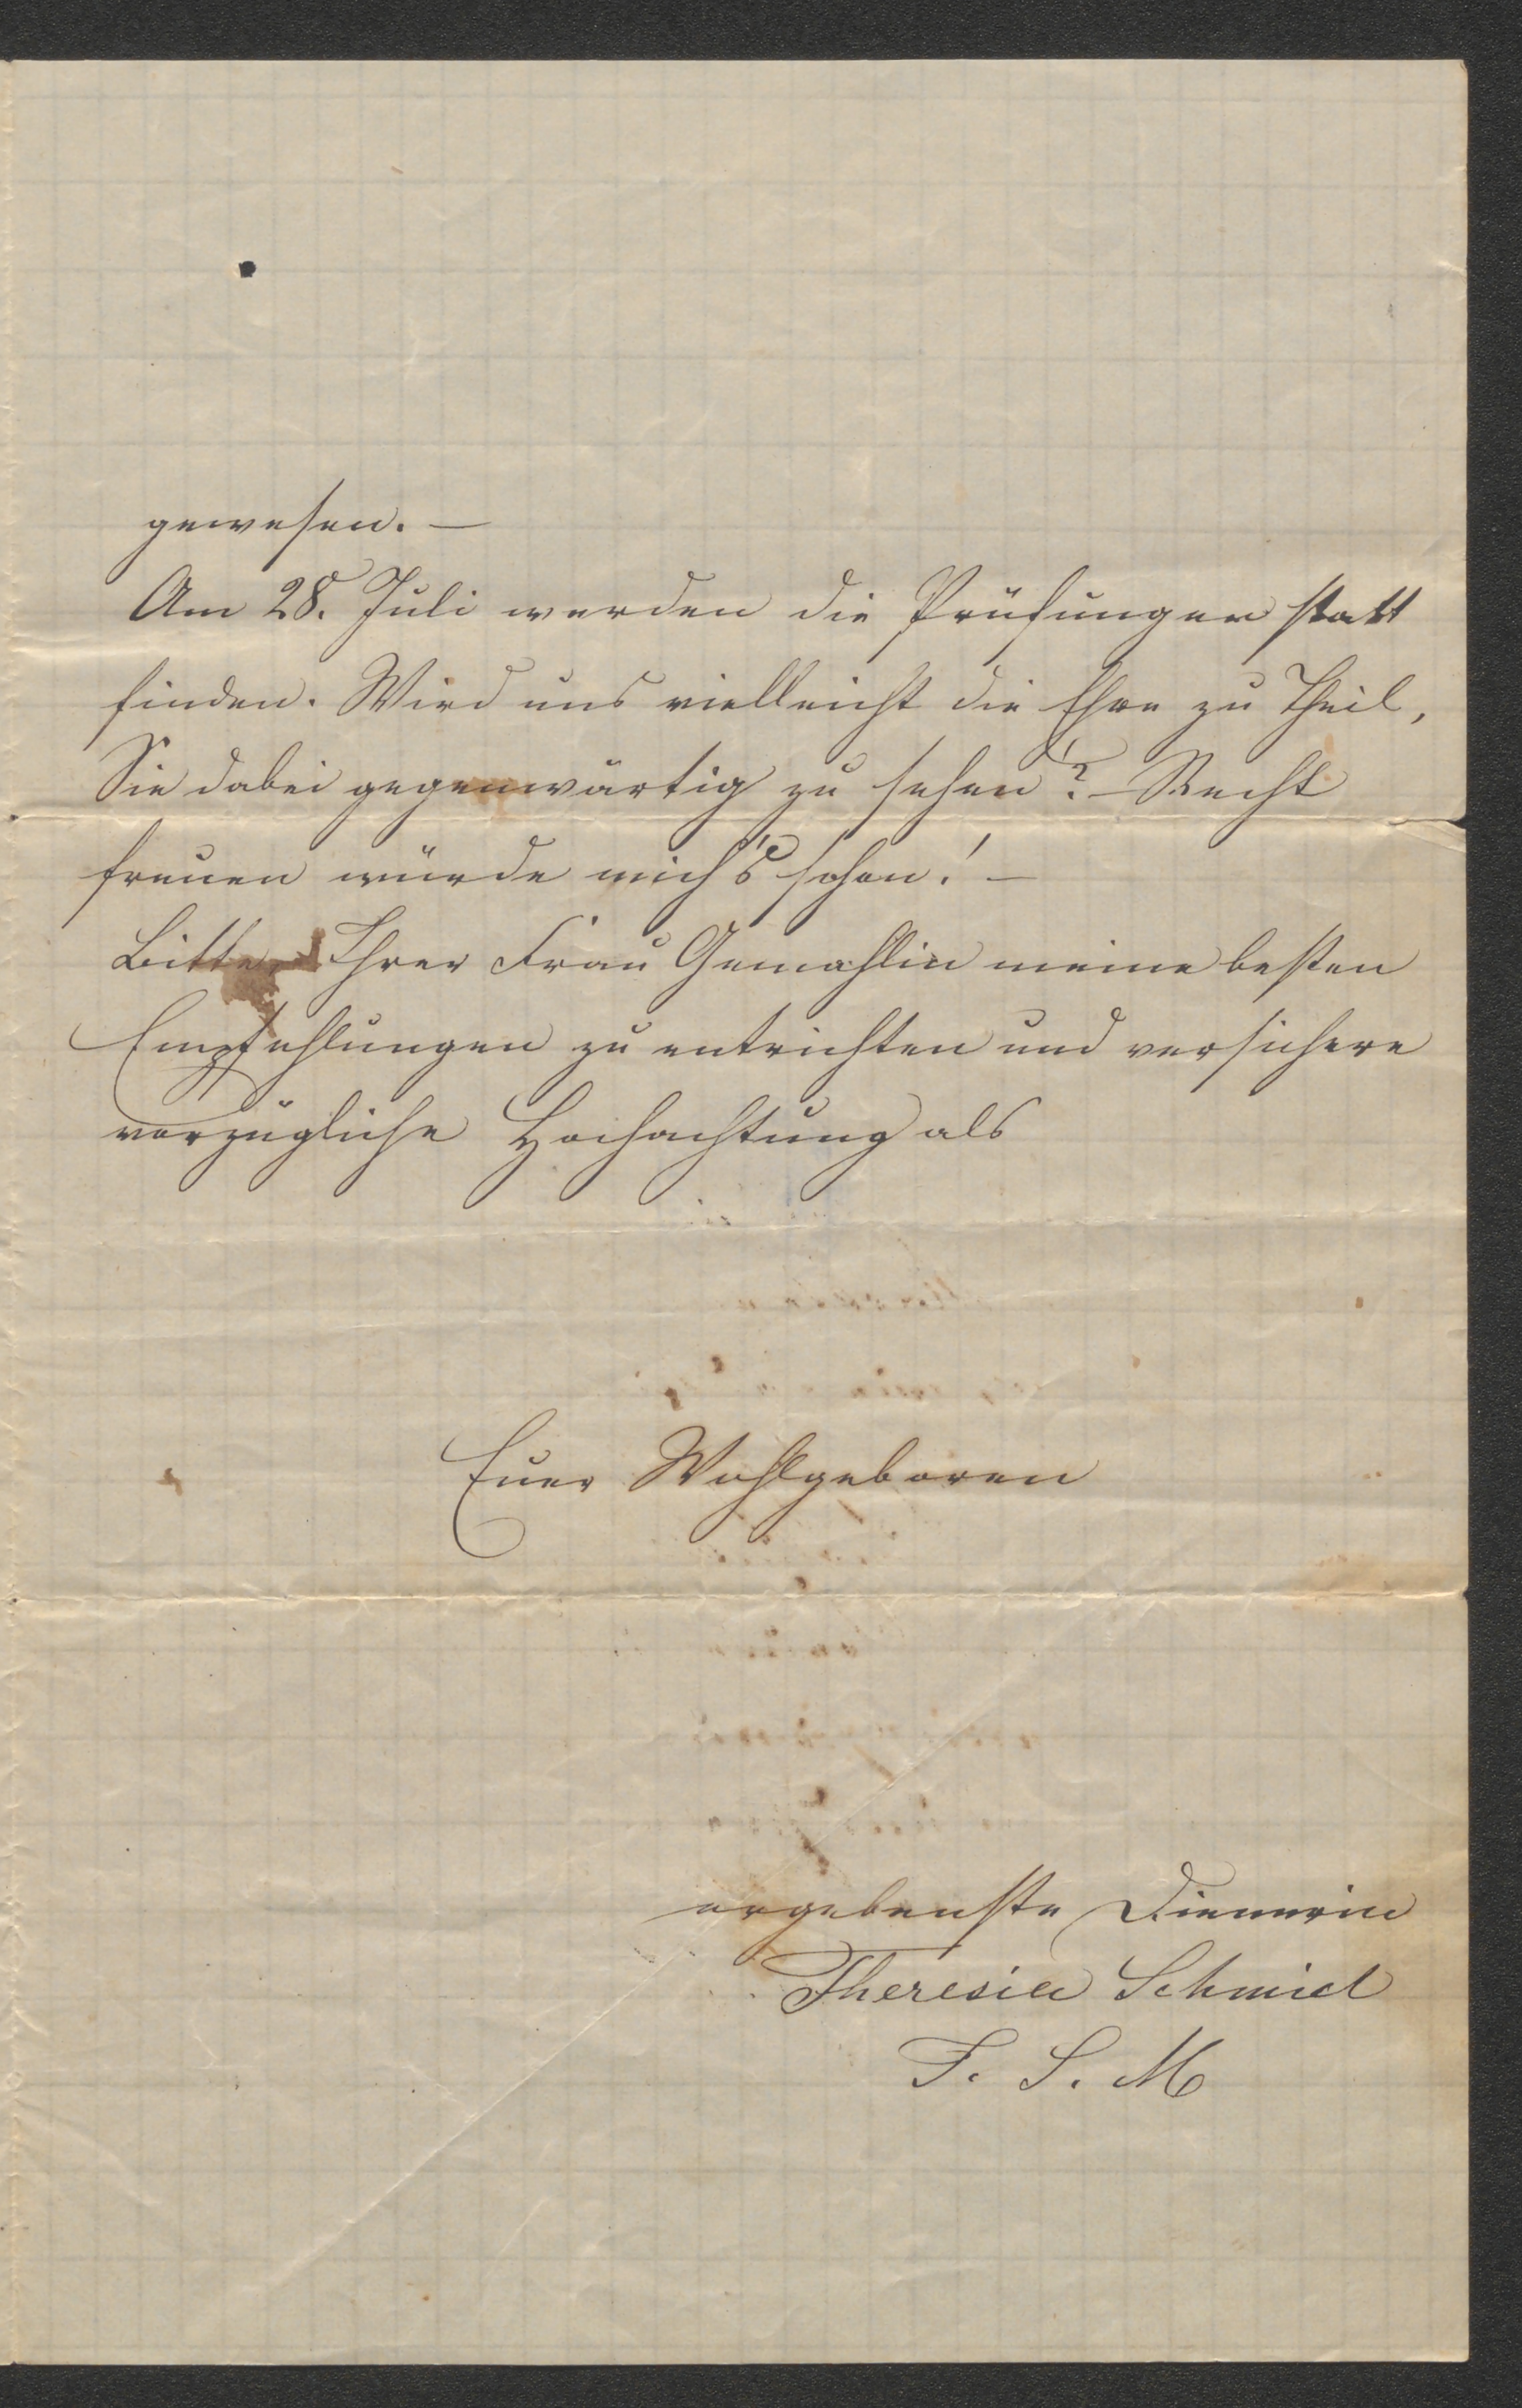 gewesen. —
Am 28. Juli werden die Prüfungen statt
finden. Wird uns vielleicht die Ehre zu Theil,
Sie dabei gegenwärtig zu sehen? — Recht
freuen würde mich's schon! —
Bitte, Ihrer Frau Gemahlin meine besten
Empfehlungen zu entrichten und versichere
vorzügliche Hochachtung als
Euer Wohlgeboren
ergebenste Dienerin
Theresia Schmid
F. S. M